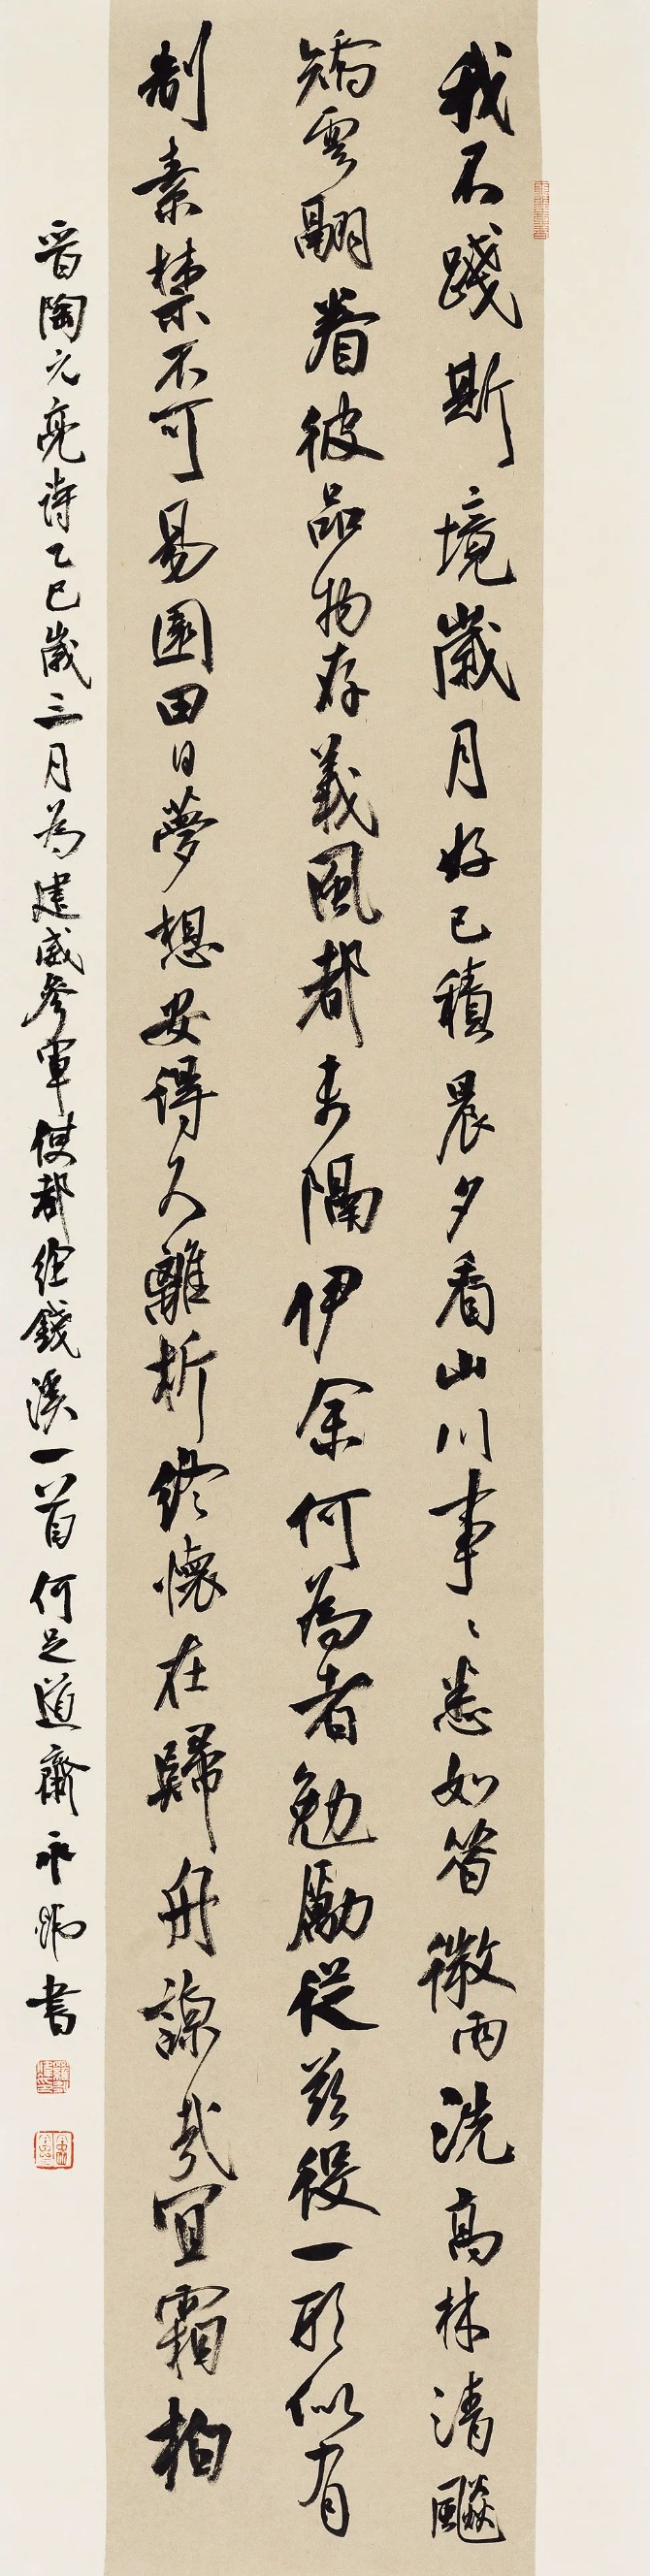 我不踐斯境歲月好已積晨夕看山川事〻悉如昔微雨洗高林清飈
矯雲翮眷彼品物存義風都未隔伊余何為者勉勵從茲役一形似有
制素襟不可易園田日夢想安得久離析終懷在歸舟諒哉宜霜柏
晉陶元亮詩乙巳歲三月為建威參軍使都經錢溪一首何足道齋書